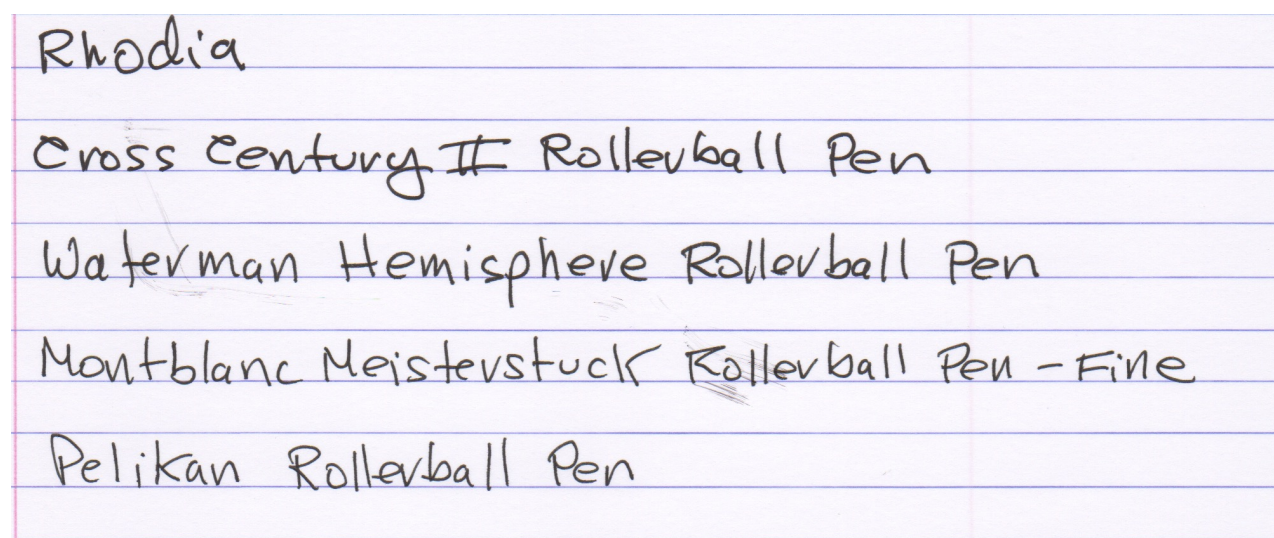 Rhodia
Cross Century II Rollerball Pen
Waterman Hemisphere Rollerball Pen
Montblanc Meisterstuck Rollerball Pen - Fine
Pelikan Rollerball Pen